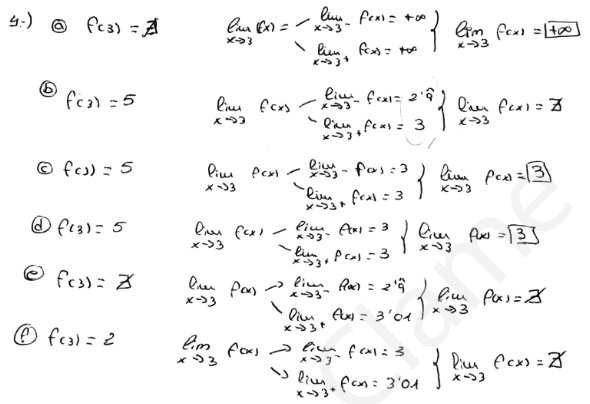 4.-) ⓐ f(3) = ∄ lim x→3 f(x) = lim x→3⁻ f(x) = +∞ lim x→3⁺ f(x) = +∞ } lim x→3 f(x) = +∞
ⓑ f(3) = 5 lim x→3 f(x) lim x→3⁻ f(x) = 2'9̂ lim x→3⁺ f(x) = 3 } lim x→3 f(x) = ∄
ⓒ f(3) = 5 lim x→3 f(x) lim x→3⁻ f(x) = 3 lim x→3⁺ f(x) = 3 } lim x→3 f(x) = 3
ⓓ f(3) = 5 lim x→3 f(x) lim x→3⁻ f(x) = 3 lim x→3⁺ f(x) = 3 } lim x→3 f(x) = 3
ⓔ f(3) = ∄ lim x→3 f(x) → lim x→3⁻ f(x) = 2'9̂ lim x→3⁺ f(x) = 3'01 } lim x→3 f(x) = ∄
ⓕ f(3) = 2 lim x→3 f(x) → lim x→3⁻ f(x) = 3 → lim x→3⁺ f(x) = 3'01 } lim x→3 f(x) = ∄